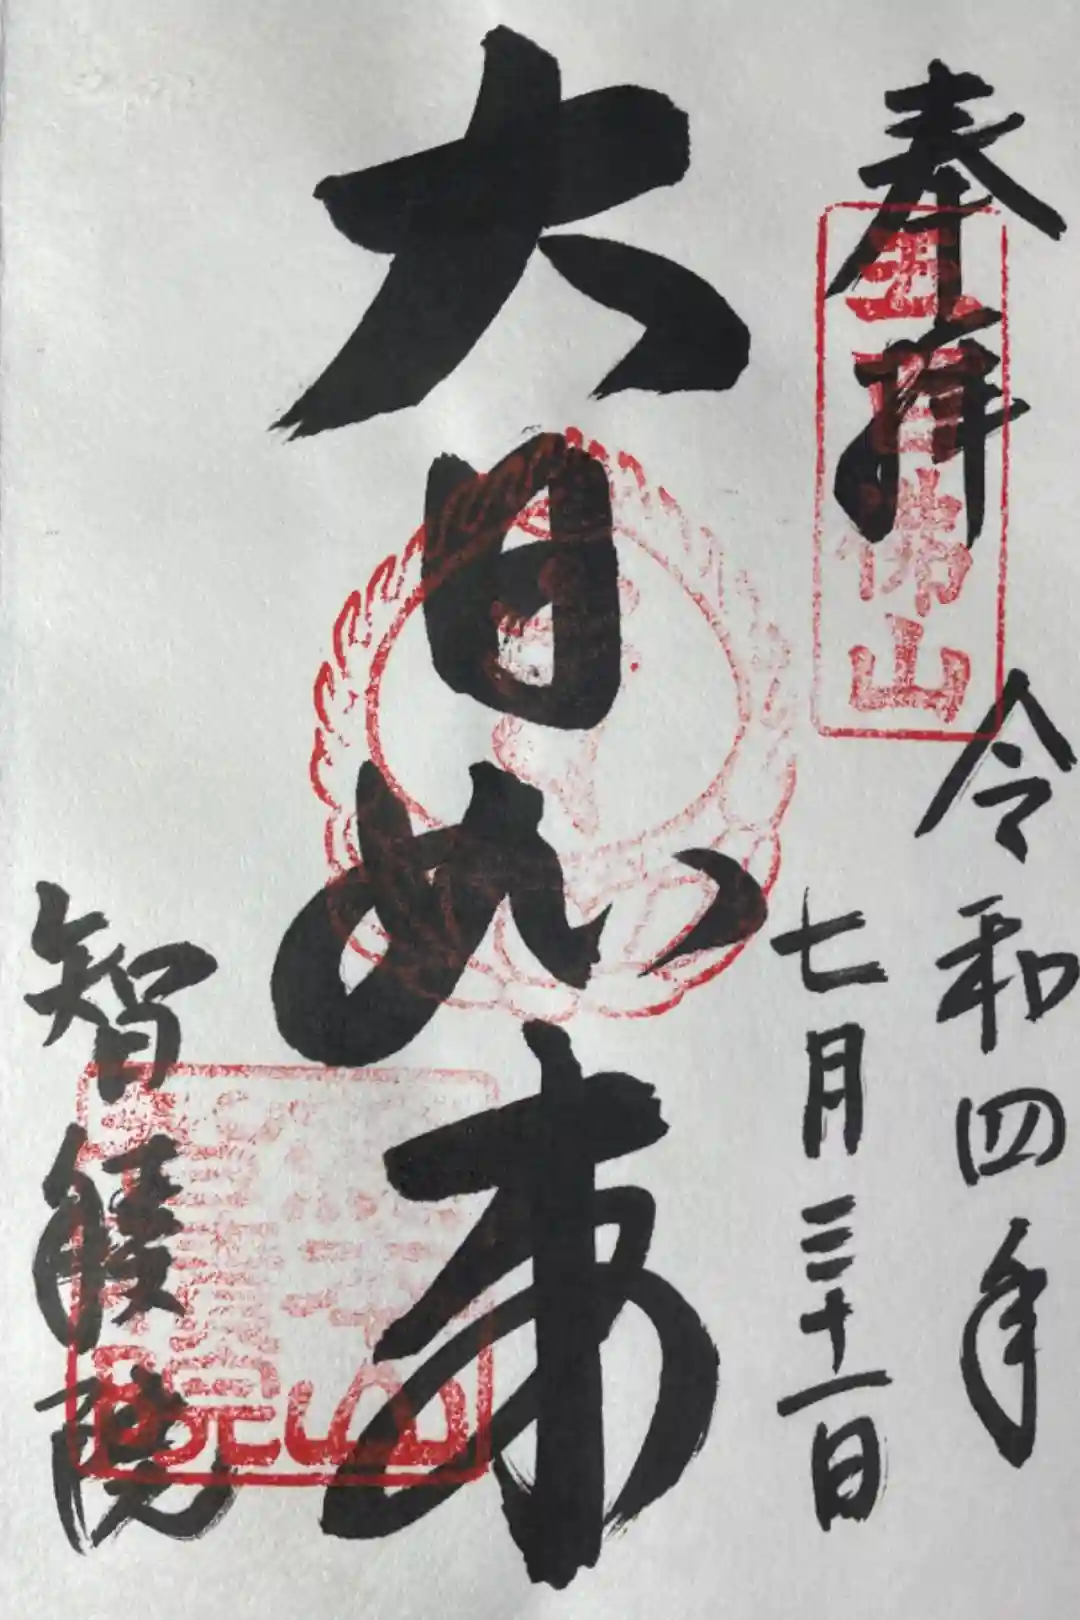 奉拝
五百佛山
令和四年
七月三十一日
大日如来
智積院